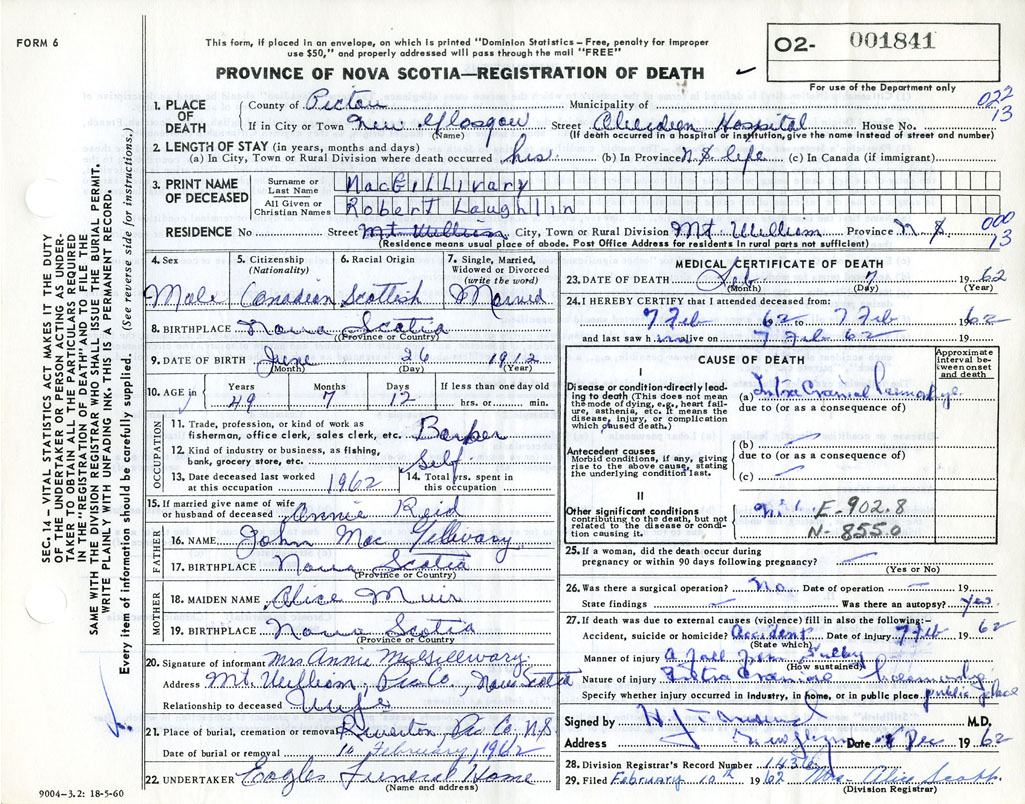 FORM 6
This form, if placed in an envelope, on which is printed "Dominion Statistics – Free, penalty for improper
use $50," and properly addressed will pass through the mail "FREE"
PROVINCE OF NOVA SCOTIA—REGISTRATION OF DEATH
O2- 001841
For use of the Department only
022
13
SEC. 14 – VITAL STATISTICS ACT MAKES IT THE DUTY
OF THE UNDERTAKER OR PERSON ACTING AS UNDER-
TAKER TO OBTAIN ALL THE PARTICULARS REQUIRED
IN THE "REGISTRATION OF DEATH" AND TO FILE THE
SAME WITH THE DIVISION REGISTRAR WHO SHALL ISSUE THE BURIAL PERMIT.
WRITE PLAINLY WITH UNFADING INK. THIS IS A PERMANENT RECORD.
Every item of information should be carefully supplied. (See reverse side for instructions.)
1. PLACE OF DEATH
County of Pictou Municipality of
If in City or Town New Glasgow Street Aberdeen Hospital House No.
(Name) (If death occurred in a hospital or institution, give the name instead of street and number)
2. LENGTH OF STAY (in years, months and days)
(a) In City, Town or Rural Division where death occurred hrs. (b) In Province N.S. life (c) In Canada (if immigrant)
3. PRINT NAME OF DECEASED
Surname or Last Name MacGillivary
All Given or Christian Names Robert Laughlin
RESIDENCE No Street Mt. William City, Town or Rural Division Mt. William Province N.S.
(Residence means usual place of abode. Post Office Address for residents in rural parts not sufficient)
000
13
4. Sex Male
5. Citizenship (Nationality) Canadian
6. Racial Origin Scottish
7. Single, Married, Widowed or Divorced (write the word) Married
8. BIRTHPLACE Nova Scotia
(Province or Country)
9. DATE OF BIRTH June 26 1912
(Month) (Day) (Year)
10. AGE in Years 49 Months 7 Days 12 If less than one day old hrs. or min.
OCCUPATION
11. Trade, profession, or kind of work as
fisherman, office clerk, sales clerk, etc. Barber
12. Kind of industry or business, as fishing,
bank, grocery store, etc. Self
13. Date deceased last worked
at this occupation 1962
14. Total yrs. spent in
this occupation
15. If married give name of wife
or husband of deceased Annie Reid
FATHER
16. NAME John MacGillivary
17. BIRTHPLACE Nova Scotia
(Province or Country)
MOTHER
18. MAIDEN NAME Alice Muir
19. BIRTHPLACE Nova Scotia
(Province or Country)
20. Signature of informant Mrs Annie MacGillivary
Address Mt. William, Pic Co, Nova Scotia
Relationship to deceased Wife
21. Place of burial, cremation or removal Riverton Pic. Co. N.S
Date of burial or removal 10 February, 1962
22. UNDERTAKER Eagles Funeral Home
(Name and address)
9004-3.2: 18-5-60
MEDICAL CERTIFICATE OF DEATH
23. DATE OF DEATH Feb 7 1962
(Month) (Day) (Year)
24. I HEREBY CERTIFY that I attended deceased from:
7 Feb 62 to 7 Feb 1962
and last saw him alive on 7 Feb 62
CAUSE OF DEATH
Approximate interval between onset and death
I
Disease or condition directly lead-
ing to death (This does not mean
the mode of dying, e.g., heart fail-
ure, asthenia, etc. It means the
disease, injury, or complication
which caused death.)
(a) Intra Cranial Hemorrhage
due to (or as a consequence of)
Antecedent causes
Morbid conditions, if any, giving
rise to the above cause, stating
the underlying condition last.
(b)
due to (or as a consequence of)
(c)
II
Other significant conditions
contributing to the death, but not
related to the disease or condi-
tion causing it.
E-902.8
N-855.0
25. If a woman, did the death occur during
pregnancy or within 90 days following pregnancy?
(Yes or No)
26. Was there a surgical operation? No. Date of operation 19
State findings Was there an autopsy? Yes
27. If death was due to external causes (violence) fill in also the following:-
Accident, suicide or homicide? Accident Date of injury 7 Feb 1962
(State which)
Manner of injury a fall from
(How sustained)
Nature of injury Intra Cranial
Specify whether injury occurred in industry, in home, or in public place public place
Signed by M.D.
Address Date 8 Dec 1962
28. Division Registrar's Record Number 1436
29. Filed February 10th 1962 Mrs. Alice
(Division Registrar)